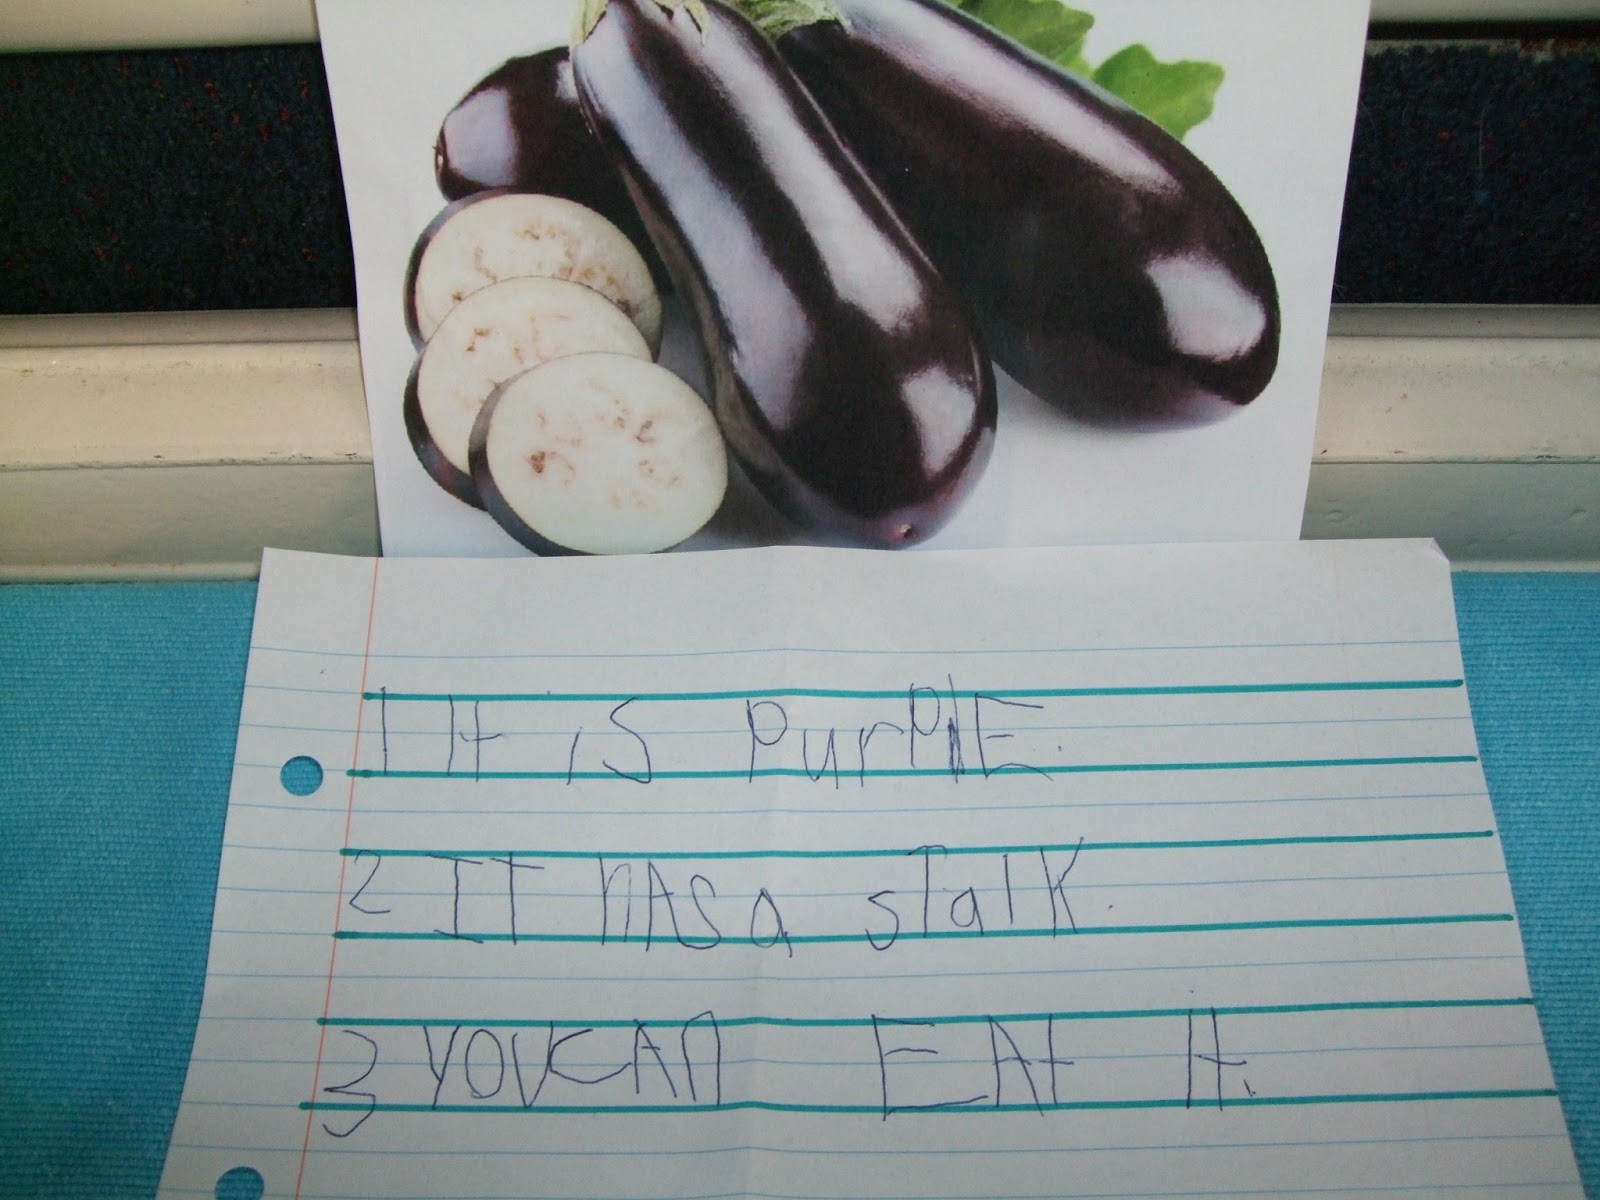 1 It is PurPlE.
2 IT hAS a sTalK.
3 YOU CAn EAt It.